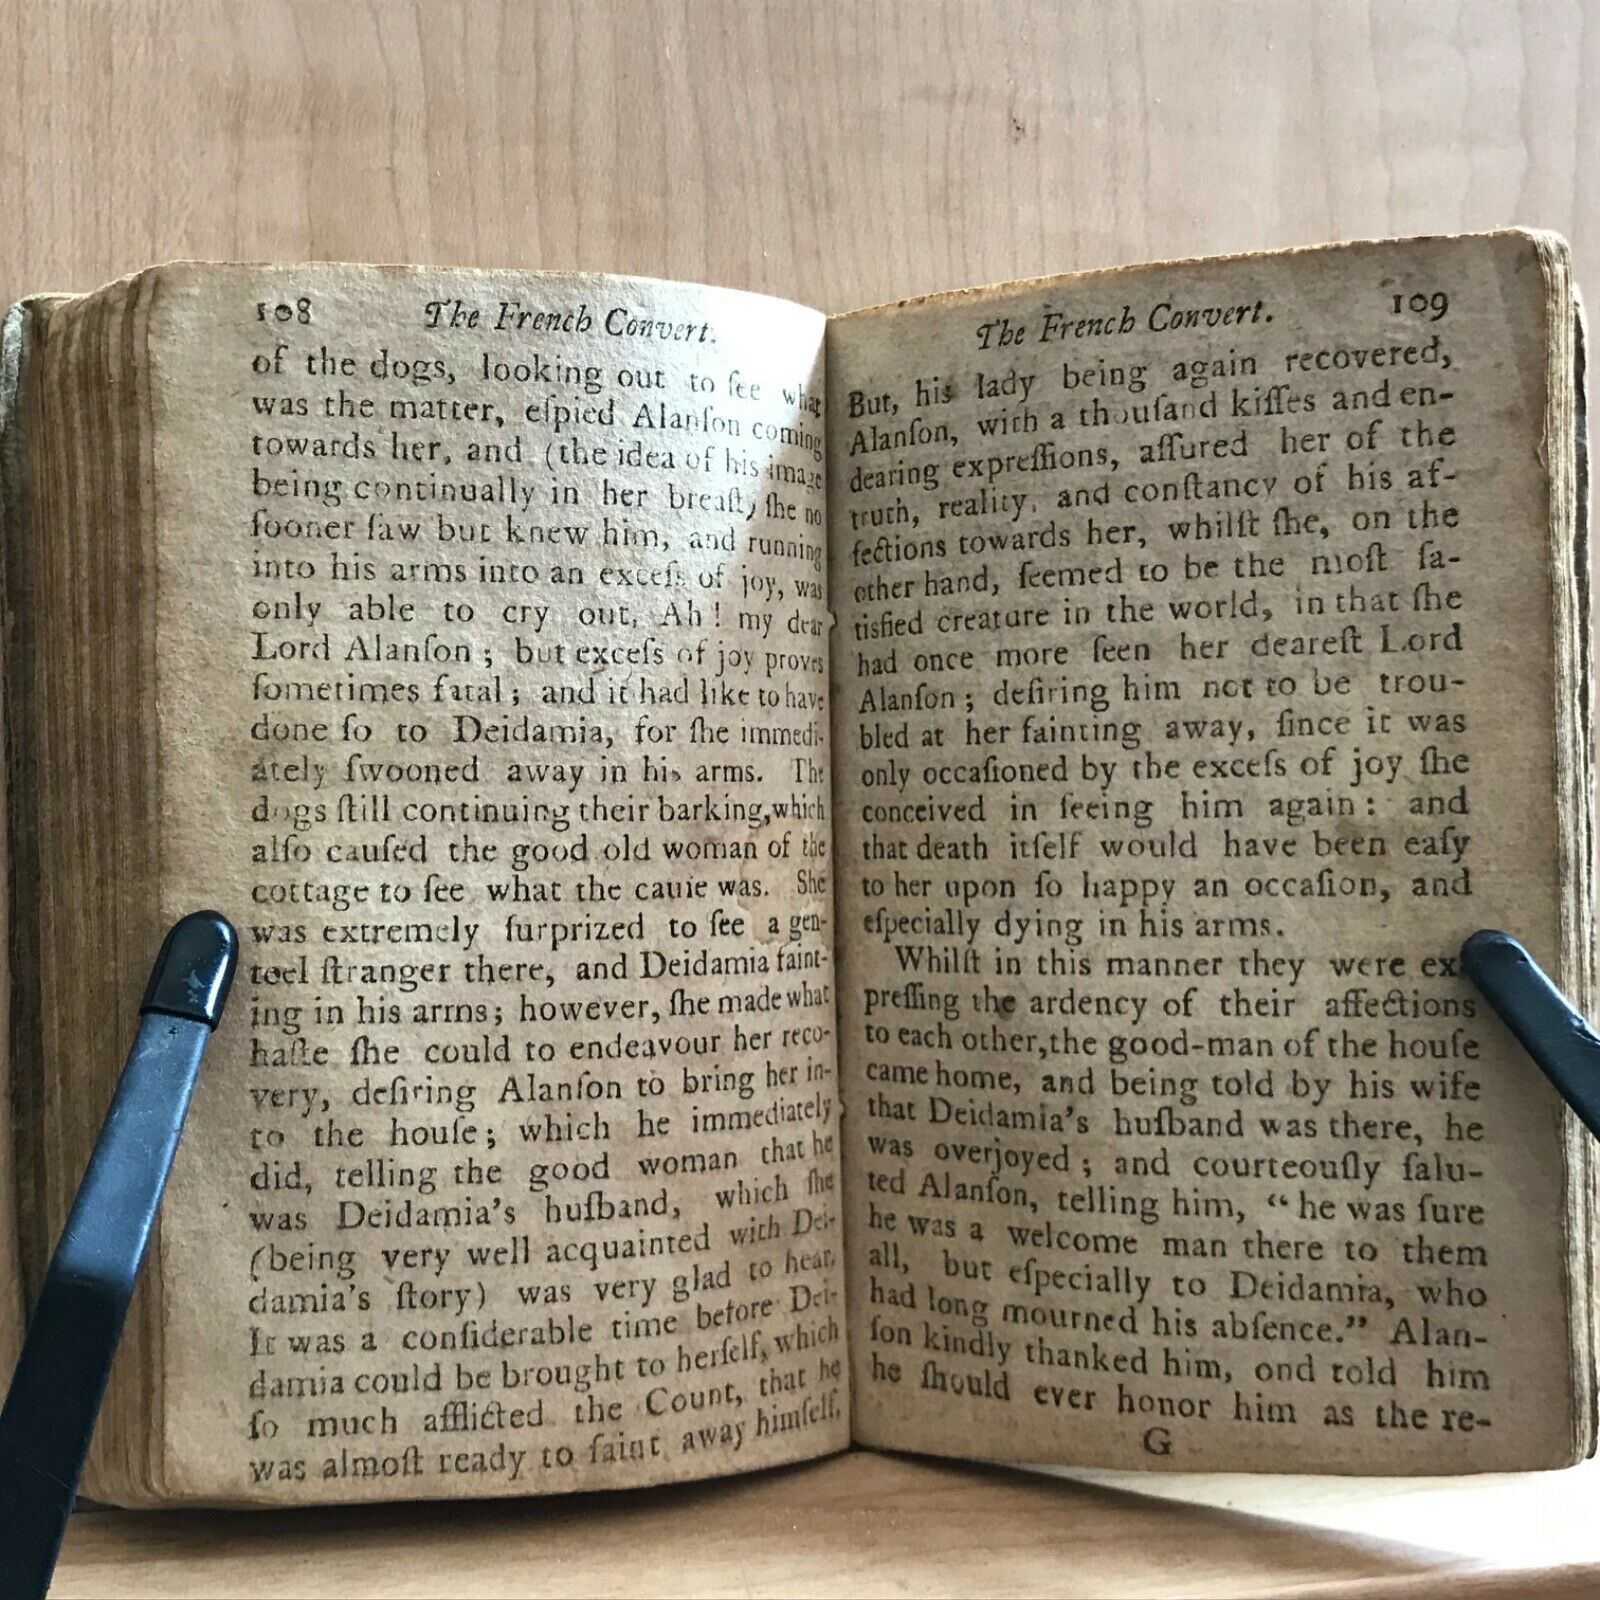 108 The French Convert.
of the dogs, looking out to ſee what
was the matter, eſpied Alanſon coming
towards her, and (the idea of his image
being continually in her breaſt) ſhe no
ſooner ſaw but knew him, and running
into his arms into an exceſs of joy, was
only able to cry out, Ah! my dear
Lord Alanſon; but exceſs of joy proves
ſometimes fatal; and it had like to have
done ſo to Deidamia, for ſhe immedi-
ately ſwooned away in his arms. The
dogs ſtill continuing their barking, which
alſo cauſed the good old woman of the
cottage to ſee what the cauſe was. She
was extremely ſurprized to ſee a gen-
teel ſtranger there, and Deidamia faint-
ing in his arms; however, ſhe made what
haſte ſhe could to endeavour her reco-
very, deſiring Alanſon to bring her in-
to the houſe; which he immediately
did, telling the good woman that he
was Deidamia's huſband, which ſhe
(being very well acquainted with Dei-
damia's ſtory) was very glad to hear.
It was a conſiderable time before Dei-
damia could be brought to herſelf, which
ſo much afflicted the Count, that he
was almoſt ready to faint away himſelf.
The French Convert. 109
But, his lady being again recovered,
Alanſon, with a thouſand kiſſes and en-
dearing expreſſions, aſſured her of the
truth, reality, and conſtancy of his af-
fections towards her, whilſt ſhe, on the
other hand, ſeemed to be the moſt ſa-
tisfied creature in the world, in that ſhe
had once more ſeen her deareſt Lord
Alanſon; deſiring him not to be trou-
bled at her fainting away, ſince it was
only occaſioned by the exceſs of joy ſhe
conceived in ſeeing him again: and
that death itſelf would have been eaſy
to her upon ſo happy an occaſion, and
eſpecially dying in his arms.
Whilſt in this manner they were ex-
preſſing the ardency of their affections
to each other, the good-man of the houſe
came home, and being told by his wife
that Deidamia's huſband was there, he
was overjoyed; and courteouſly ſalu-
ted Alanſon, telling him, “he was ſure
he was a welcome man there to them
all, but eſpecially to Deidamia, who
had long mourned his abſence.” Alan-
ſon kindly thanked him, ond told him
he ſhould ever honor him as the re-
G